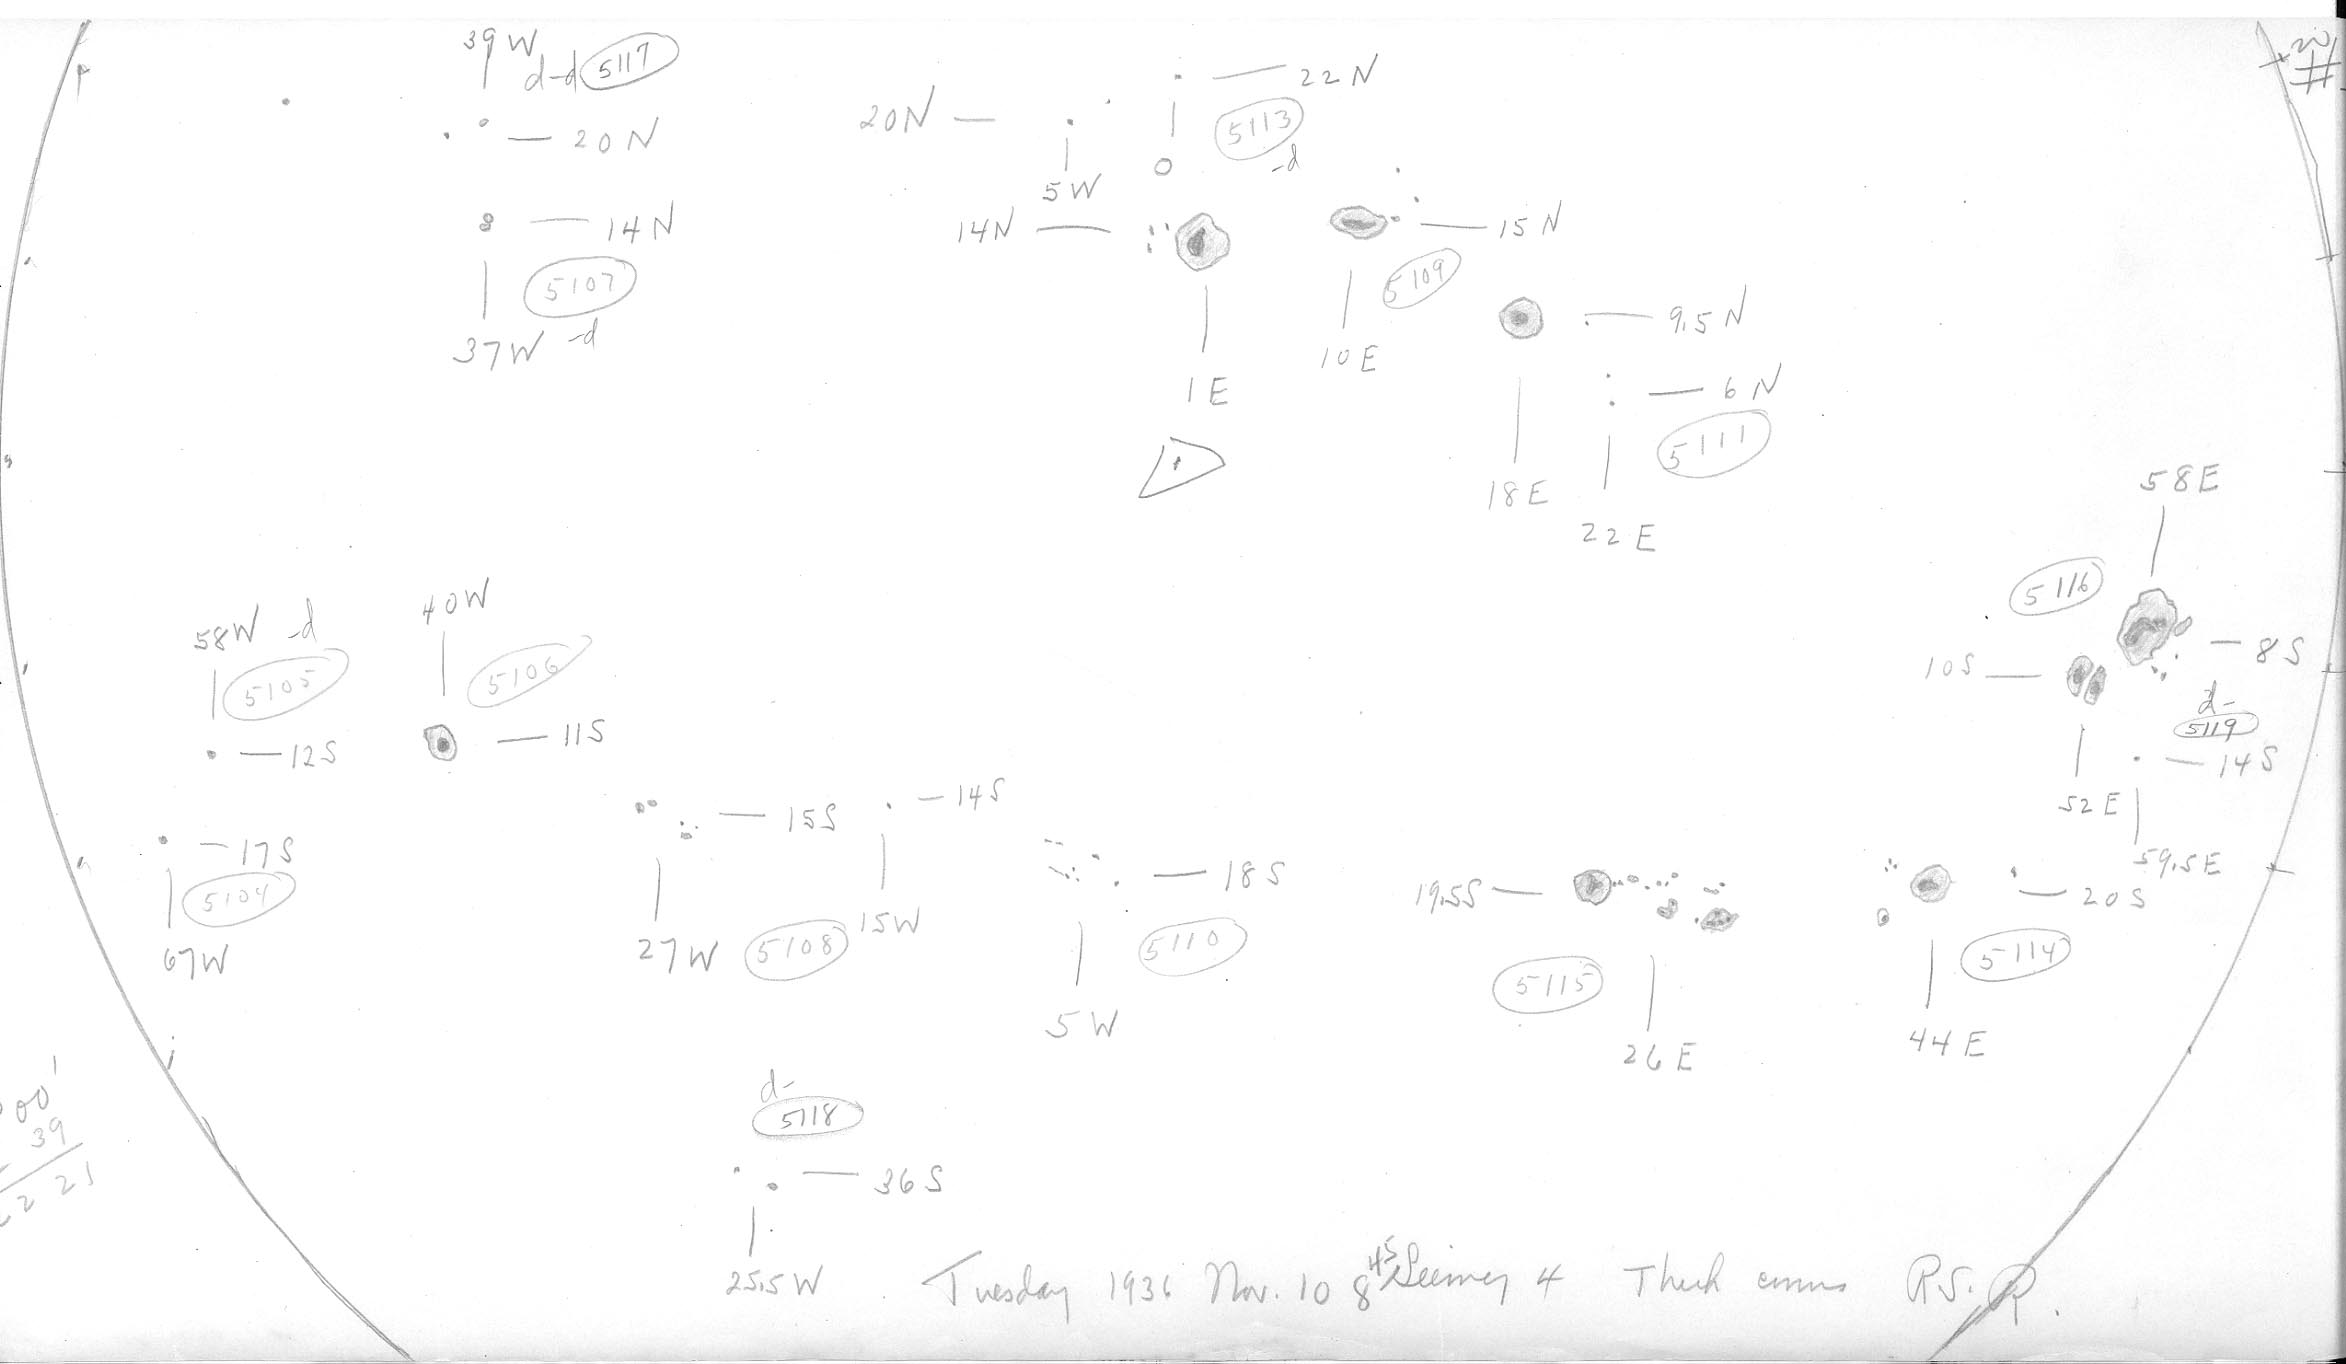 39W
d-d 5117
20N
14N
5107
37W -d
20N
5W
22N
5113
-d
0
14N
1E
15N
5109
10E
9.5N
18E
6N
5111
22E
58E
5116
8S
10S
52E
d-
5119
14S
59.5E
58W -d
5105
12S
40W
5106
11S
17S
5104
67W
15S
27W
5108
14S
15W
18S
5110
5W
19.5S
5115
26E
20S
5114
44E
d-
5118
36S
25.5W
39
2 21
Tuesday 1936 Nov. 10 8 45 Seeing 4 Thick cirrus R.S.R.